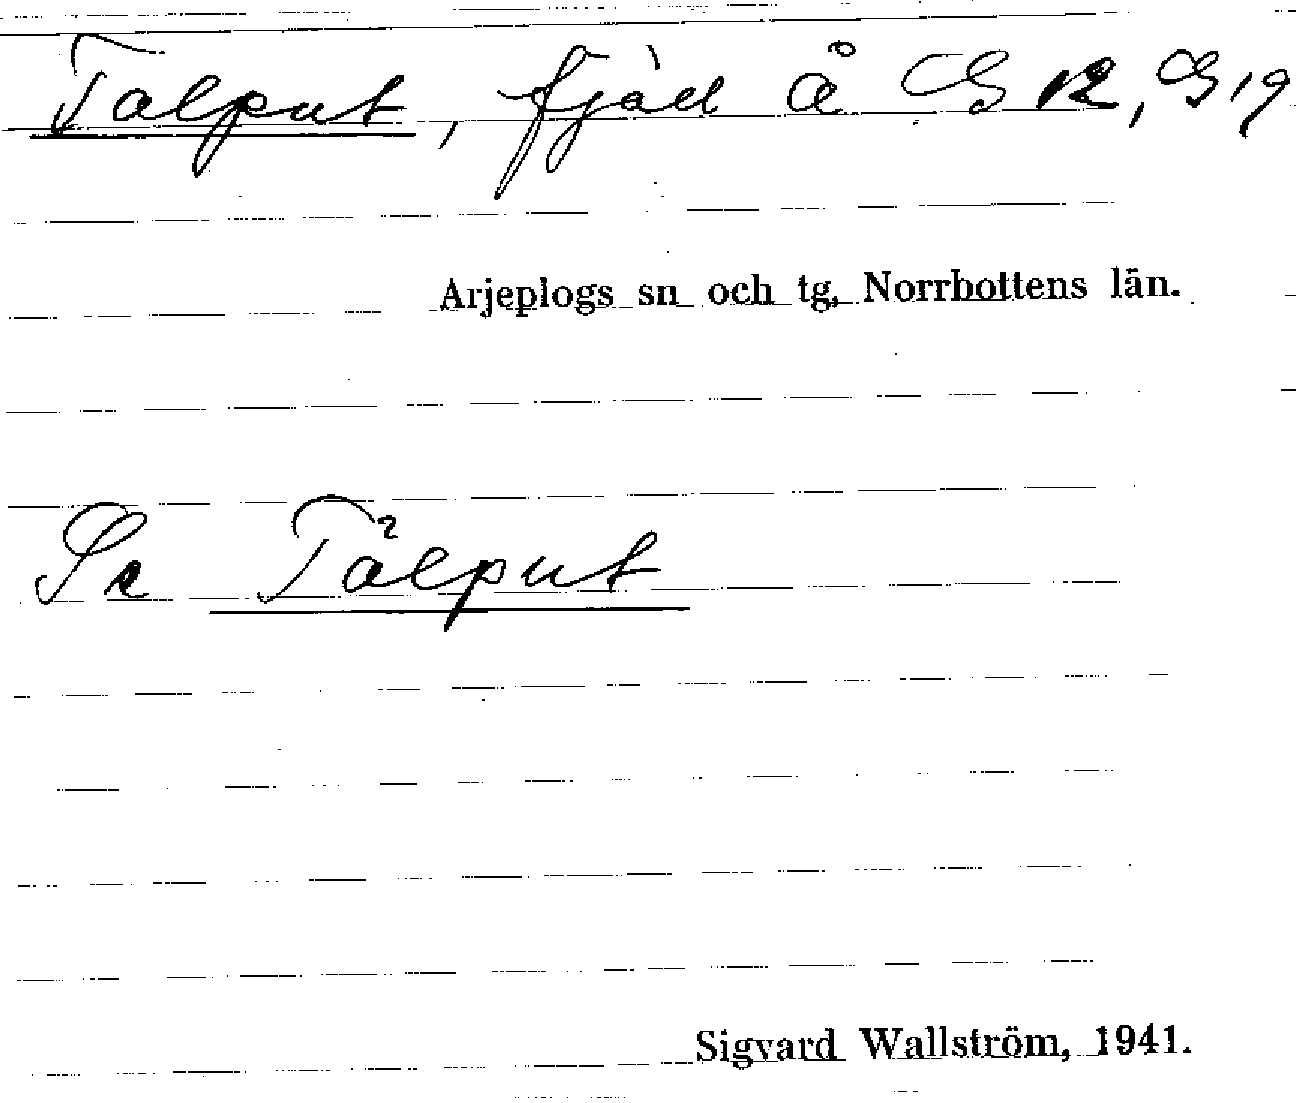 Talput, fjäll å G 12, G 19
Arjeplogs sn och tg, Norrbottens län.
Se Tålput
Sigvard Wallström, 1941.